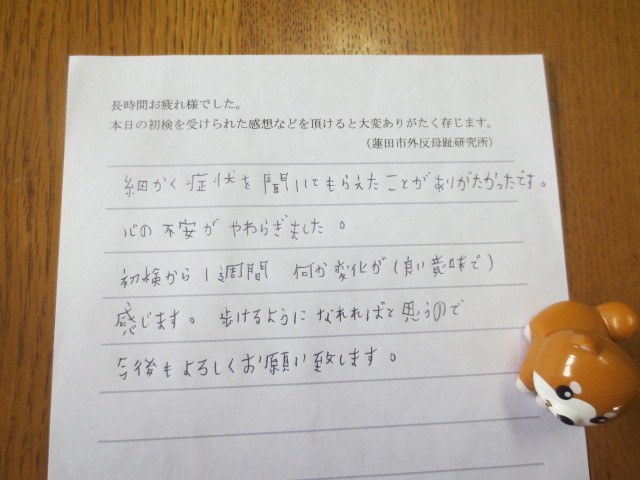 長時間お疲れ様でした。
本日の初検を受けられた感想などを頂けると大変ありがたく存じます。
（蓮田市外反母趾研究所）
細かく症状を聞いてもらえたことがありがたかったです。
心の不安がやわらぎました。
初検から1週間 何か変化が(良い意味で)
感じます。歩けるようになれればと思うので
今後もよろしくお願い致します。